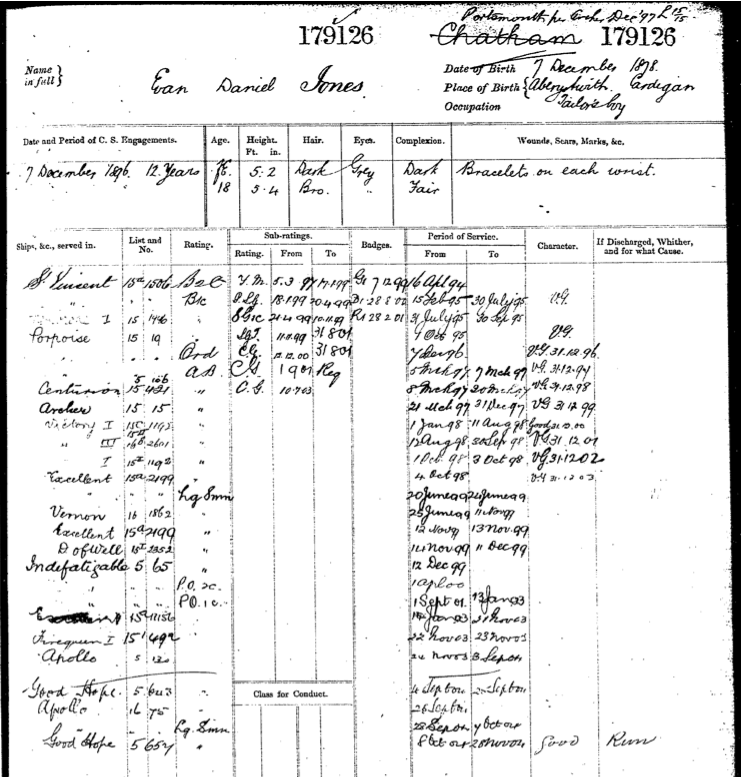 Portsmouth per Archer Dec '97
179126 Chatham 179126
Name in full } Evan Daniel Jones
Date of Birth 7 December 1878.
Place of Birth { Aberystwith. Cardigan
Occupation Tailor's boy
Date and Period of C. S. Engagements. Age. Height. Ft. in. Hair. Eyes. Complexion. Wounds, Scars, Marks, &c.
7 December 1896. 12 Years 5.2 Dark Grey Dark Bracelets on each wrist.
18 5.4 Bro. " Fair
Ships, &c., served in. List and No. Rating. Sub-ratings. Rating. From To Badges. Period of Service. From To Character. If Discharged, Whither, and for what Cause.
St Vincent 15a 1506 B2C 16 Apl 94
" B1C 15 Feb 95 30 July 95 V.G.
I 15 " 31 July 95 30 Sep 95
Porpoise 15 19 " 11.11.99 31 8 01 1 Oct 95 V.G.
" " Ord 12.12.00 31 8 01 7 Dec 96 V.G. 31.12.96
A.B. 5 Mch 97 7 Mch 97 V.G. 31.12.97
Centurion 15 421 " C.G. 10.7.03 8 Mch 97 20 Mch 97 V.G. 31.12.98
Archer 15 15 " 21 Mch 97 31 Dec 97 VG 31 12 99
Victory I 15C 1195 " 1 Jan 98 11 Aug 98 Good 31.12.00
" III 2601 " 12 Aug 98 30 Sep 98 V.G 31.12 01
I 15I 1192 " 1 Oct. 98 3 Oct 98 VG 31.12 02
Excellent 15a 2199 " 4 Oct 98 V.G 31.12 03
" " Lg Smn 20 June 99 24 June 99
Vernon 16 1862 " 25 June 99 11 Nov 99
Excellent 15a 2199 " 12 Nov 99 13 Nov. 99
D of Well 15I 2352 " 14 Nov 99 11 Dec 99
Indefatigable 5 65 " 12 Dec 99
" P.O. 2c. 1 Apl 00
" P.O. 1c. 1 Sept 01. 13 Jan 03
15a " 14 Jan 03 21 Nov 03
Firequeen I 15 492 " 22 Nov 03 23 Nov 03
Apollo 5 " 24 Nov 03 3 Sep 04
Good Hope. 5 643 " Class for Conduct. 4 Sep 04
Apollo 16 75 " 26 Sep 04
Lg. Smn 28 Sep 04 7 Oct 04
Good Hope 5 657 " 8 Oct 04 28 Nov 04 Good Run